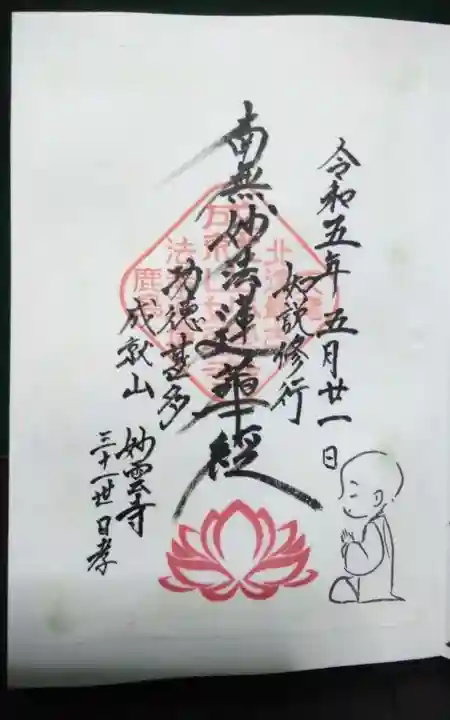 令和五年五月廿一日
如説修行
南無妙法蓮華經
功徳甚多
成就山
妙雲寺
三十一世日孝